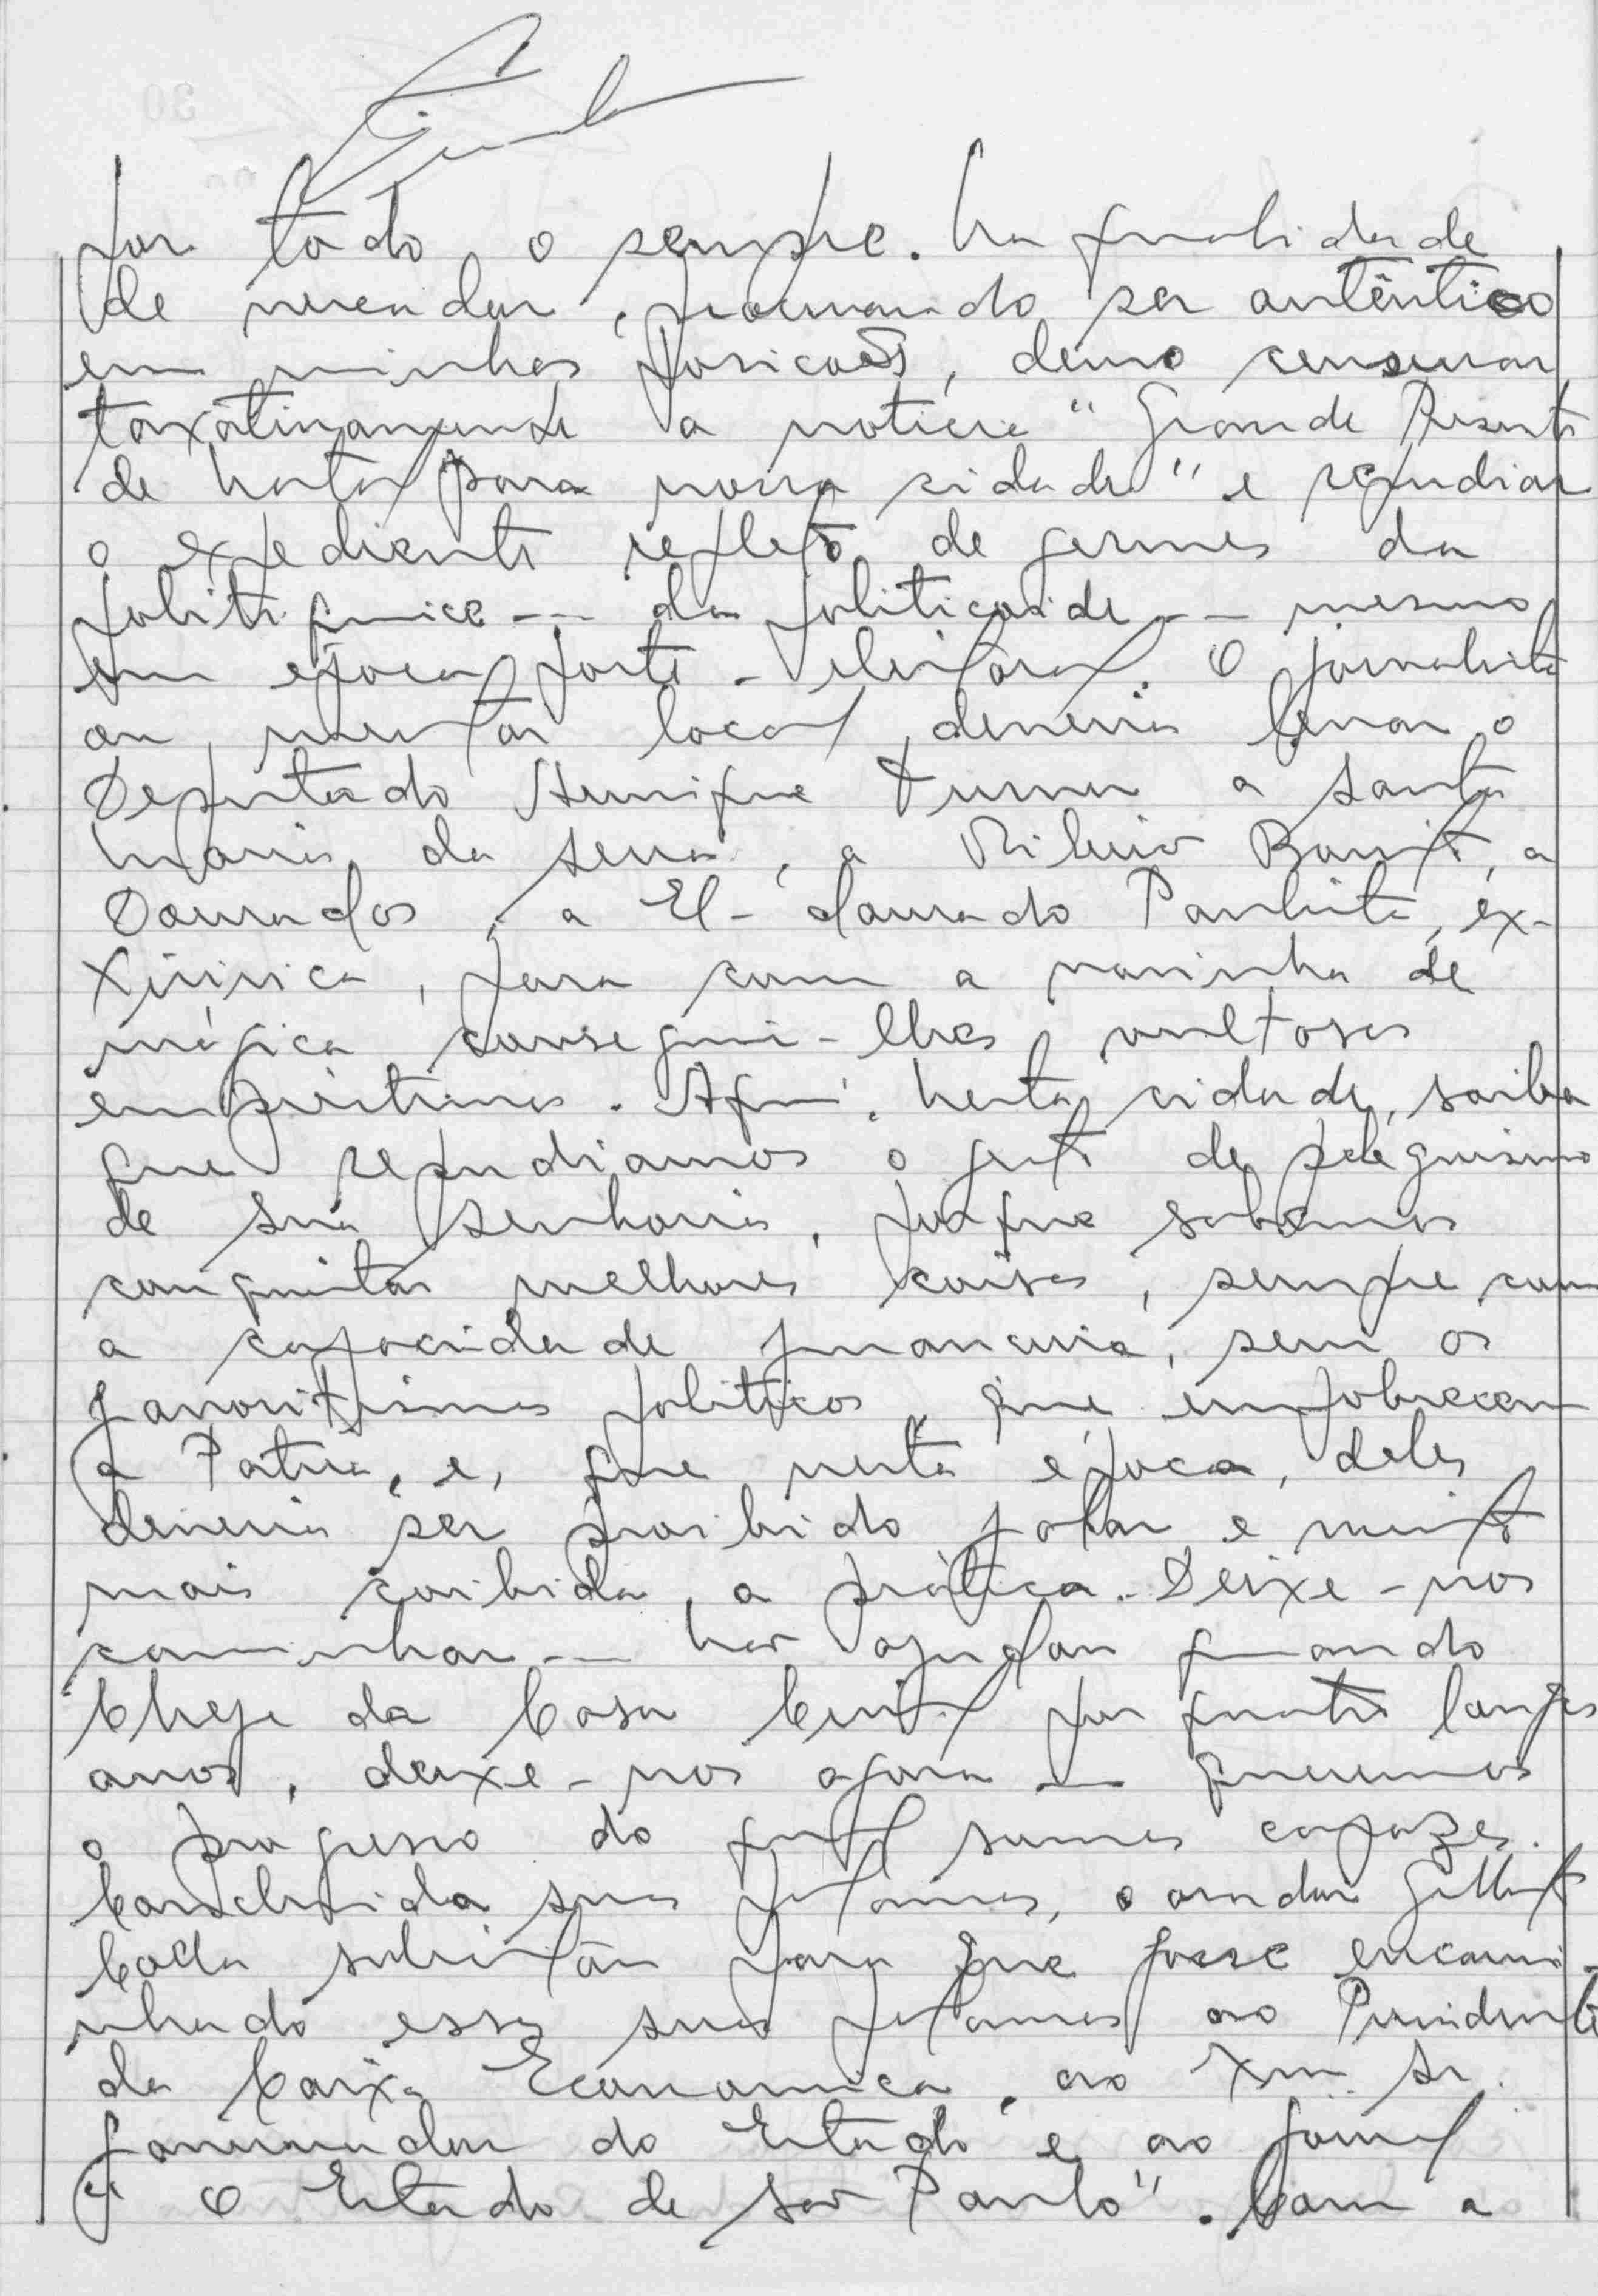 por todo o sempre. Na qualidade
de vereador, procurando ser autêntico
em minhas posicões, devo censurar
taxativamente a noticia "Grande Presente
de Natal para nossa cidade" e repudiar
o expediente reflexo de germes da
politiquice -- da politicoide -- mesmo
em época post-eleitoral. O jornalista
ou mentor local deveria levar o
Deputado Henrique Turner a Santa
Maria da Serra, a Ribeirão Bonito, a
Dourados, a El-dourado Paulista, ex-
Xiririca, para com a varinha de
mágica conseguir-lhes vultosos
empréstimos. Aqui, nesta cidade, saiba
que repudiamos o gesto de peleguismo
de sua senhoria, porque sabemos
conquistar melhores coisas, sempre com
a capacidade financeira, sem os
favoritismos politicos, que empobrecem
a Patria, e, que nesta época, deles
deveria ser proibido falar e muito
mais coibida a prática. Deixe-nos
caminhar -- Não ajudou quando
Chefe da Casa Civil por quatro longos
anos, deixe-nos agora -- queremos
o progresso do qual somos capazes.
Concluida suas palavras, o orador Gilberto
Coda solicitou para que fosse encami-
nhado essas suas palavras ao Presidente
da Caixa Economica, ao Exm. Sr.
Governador do Estado e ao Jornal
"O Estado de São Paulo". Com a